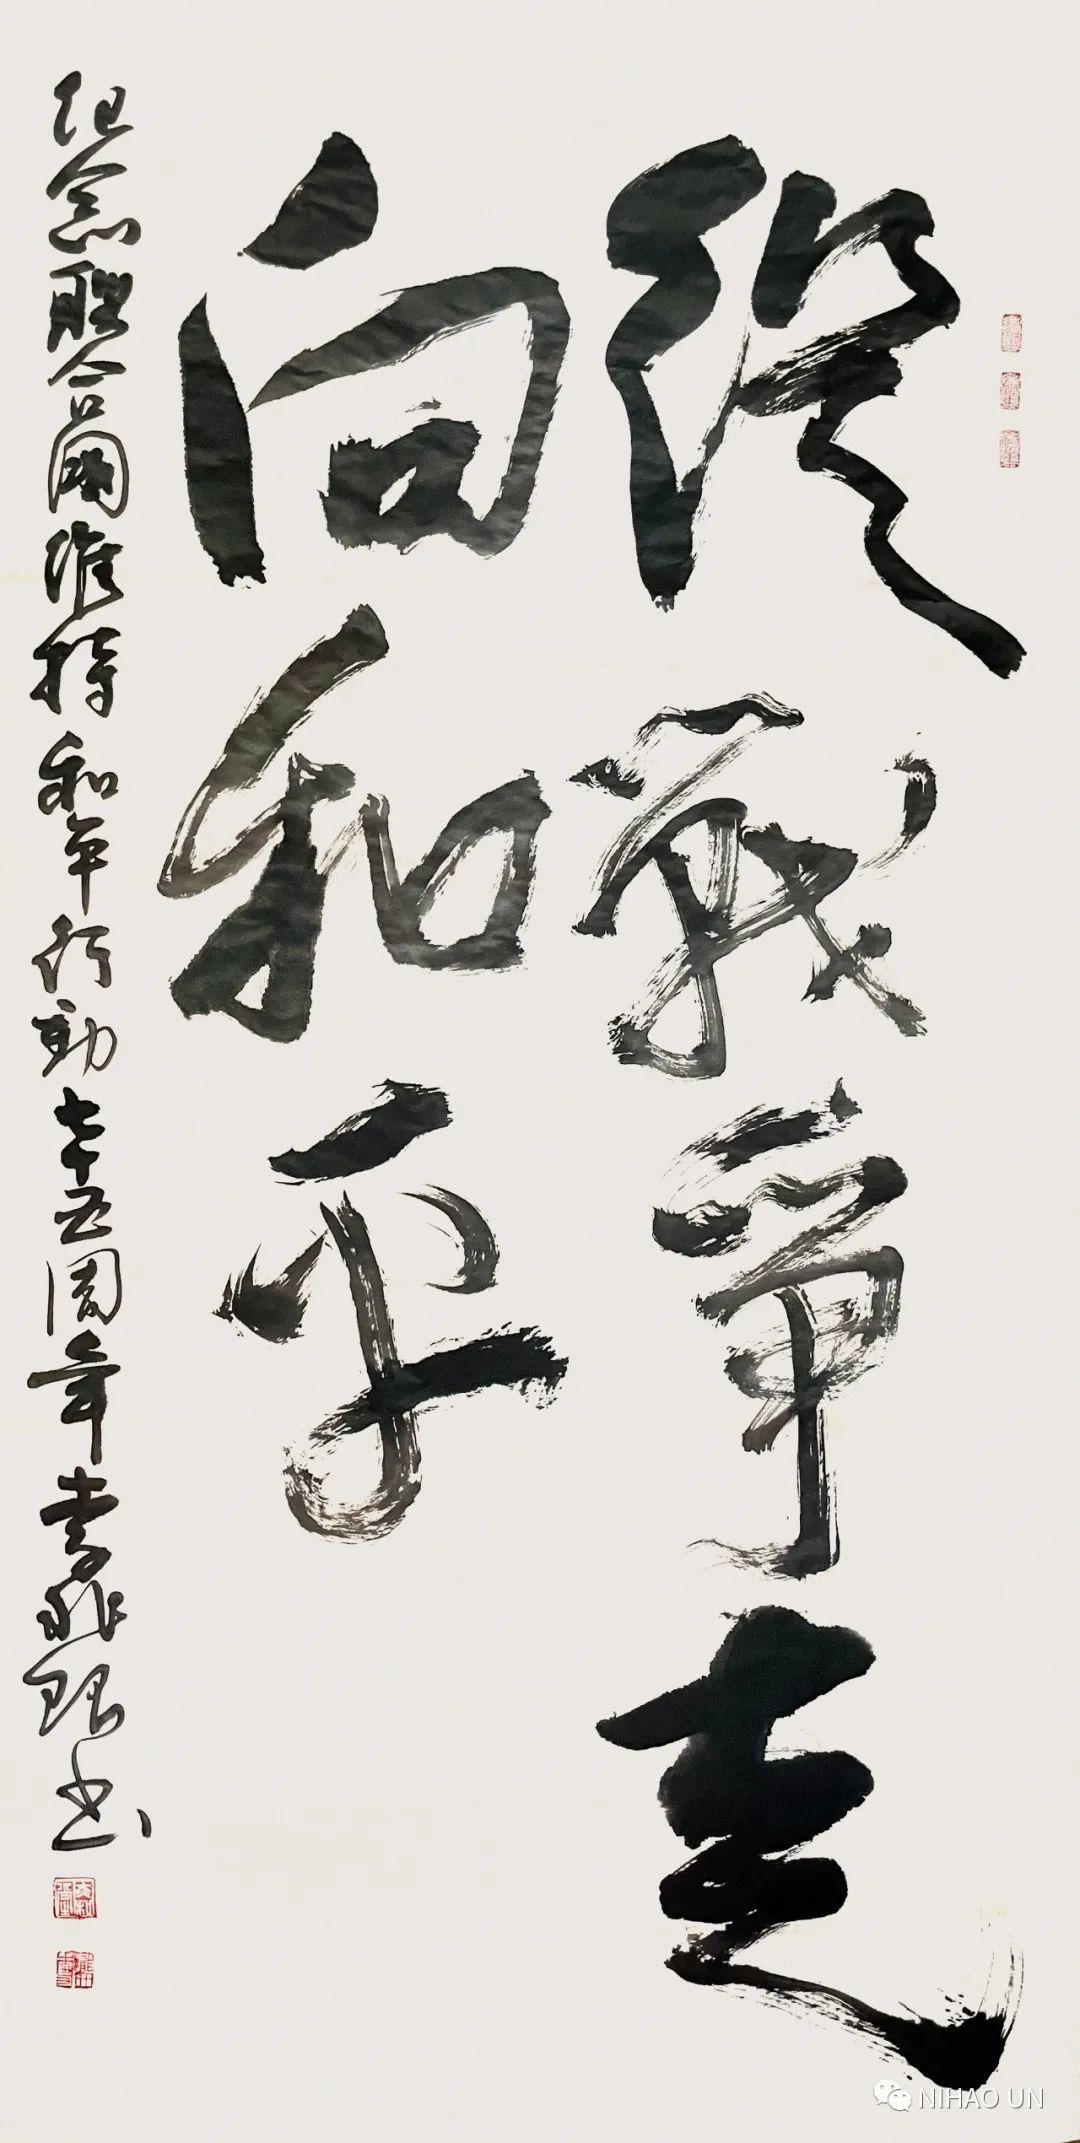 從戰爭走
向和平
纪念聯合國維持和平行動七十五周年李 书
NIHAO UN